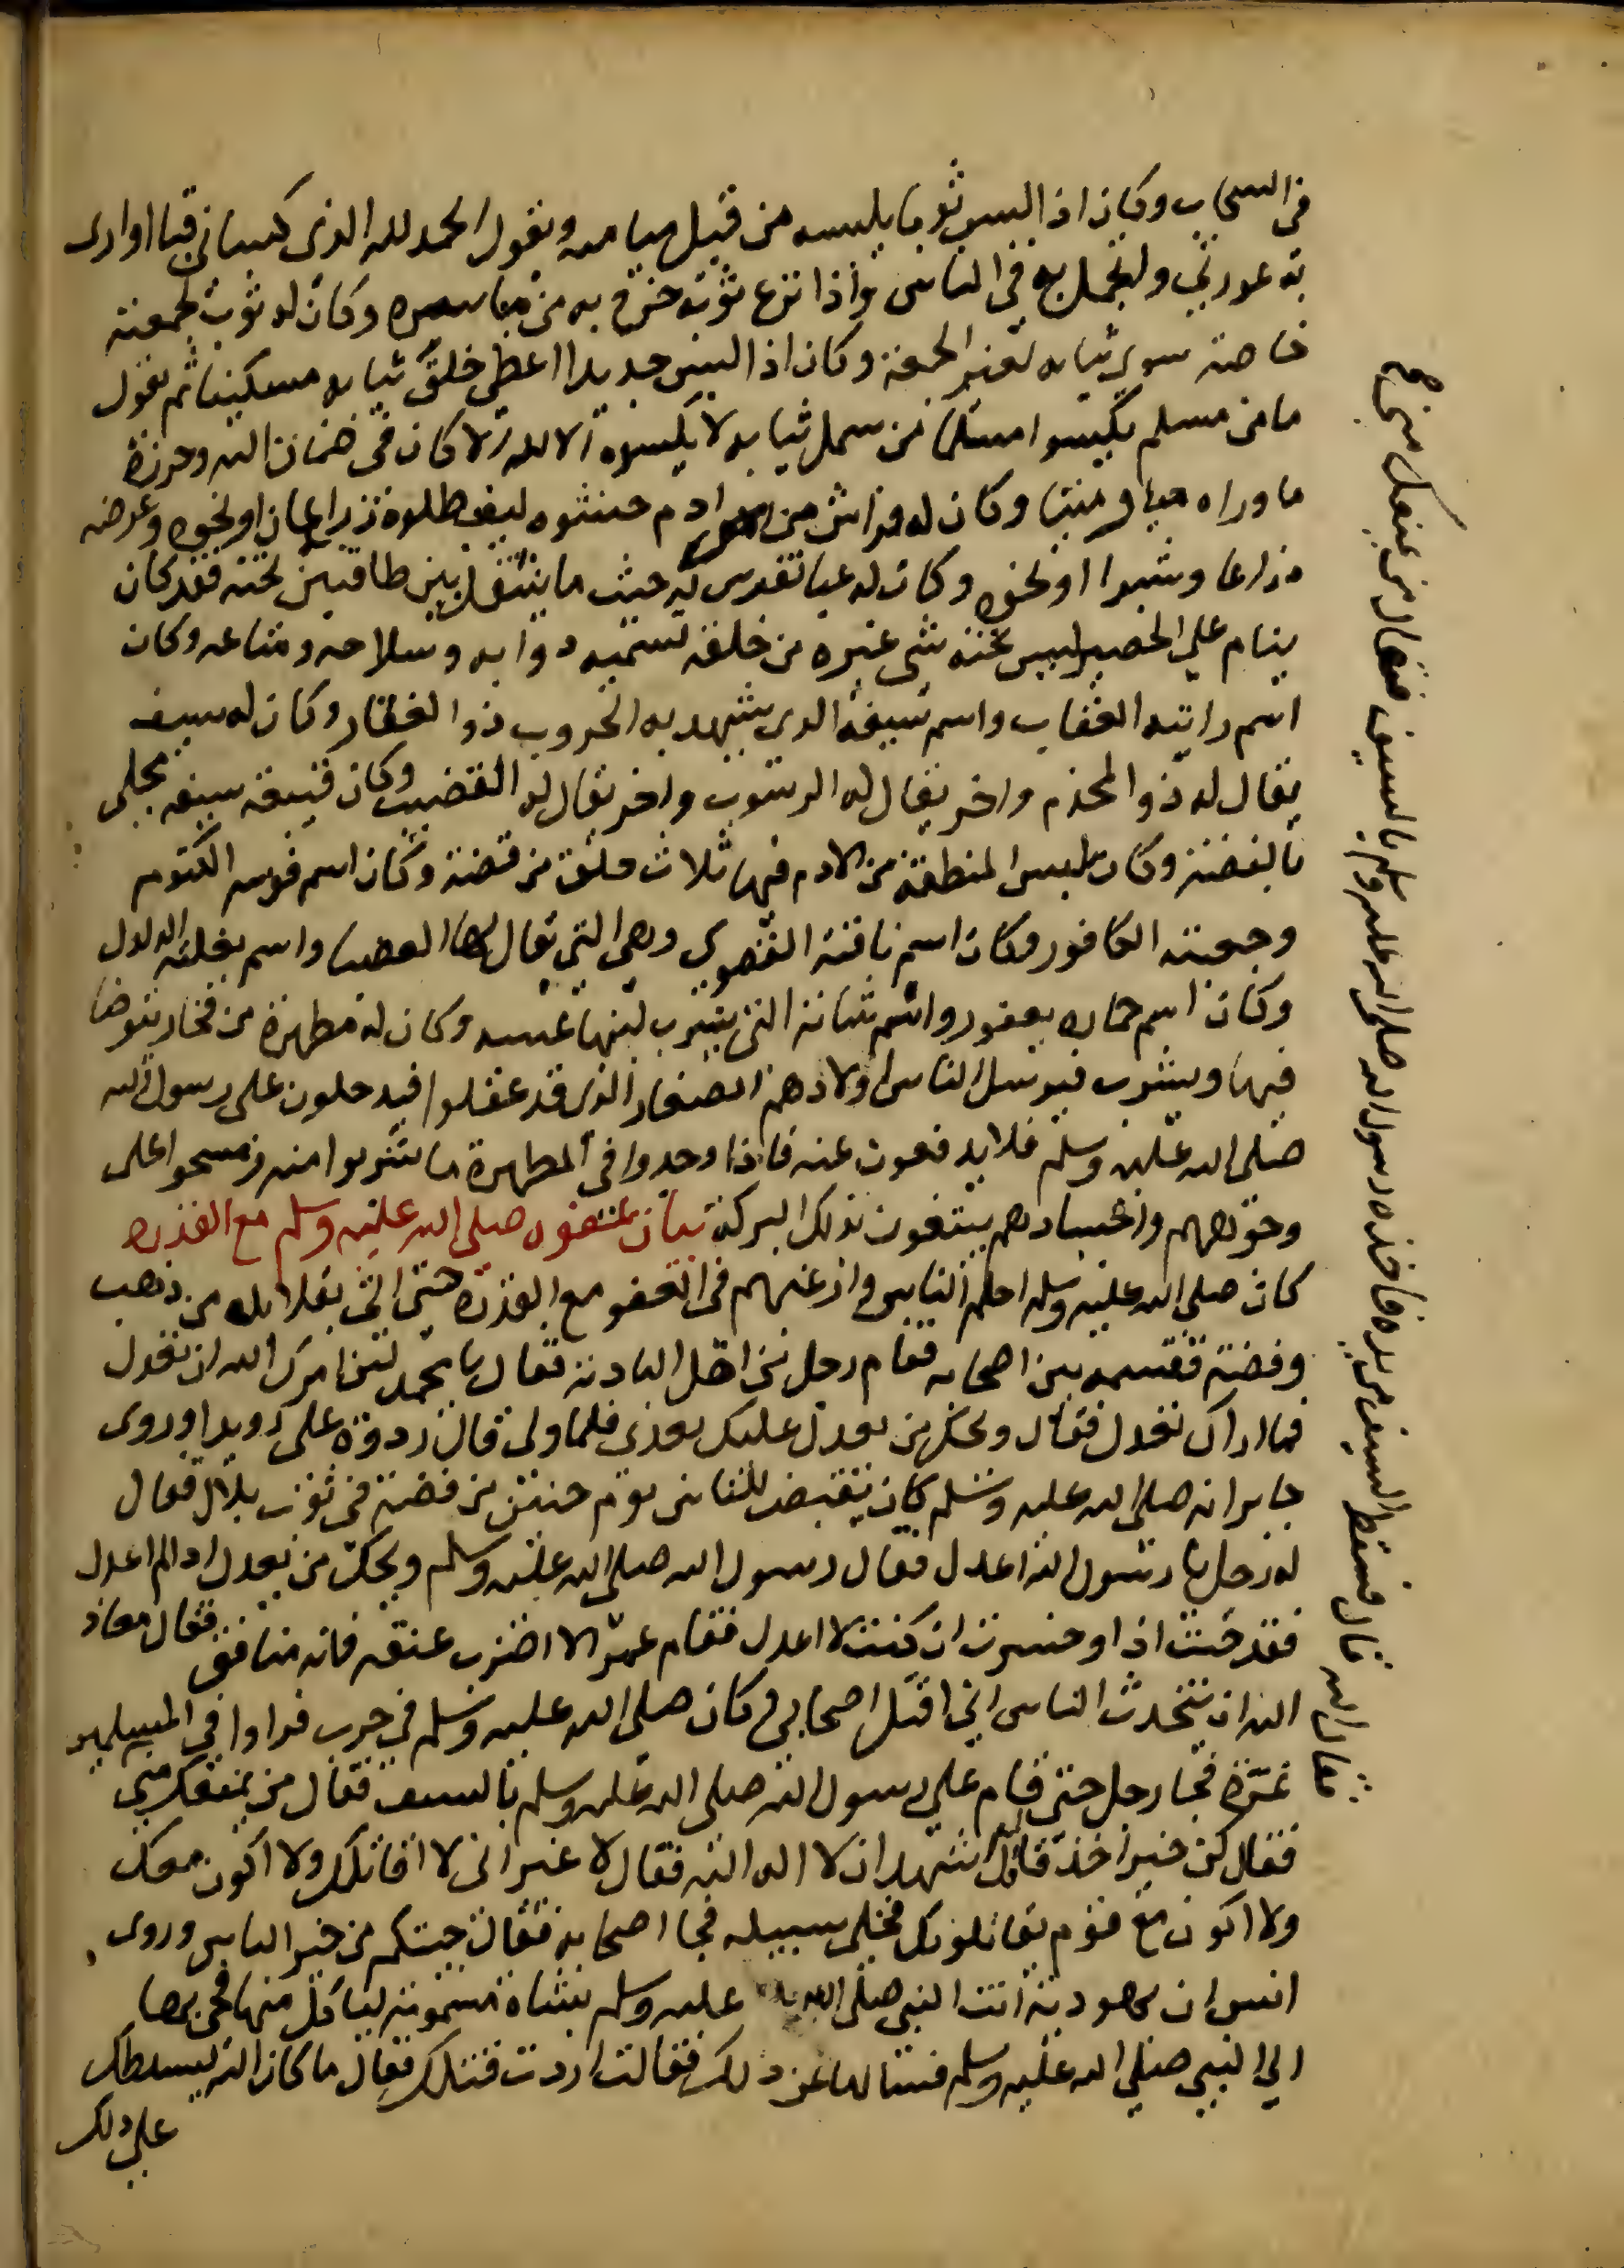 في السحاب وكان اذا لبس ثوبا يلبسه من قبل ميامنه ويقول الحمد لله الذي كساني ما اوارى
به عورتي واتجمل به في الناس واذا نزع ثوبه خرج به من مياسره وكان له ثوب لجمعته
خاصة سوى ثيابه لغير الجمعة وكان اذا لبس جديدا اعطى خلق ثيابه مسكينا ثم يقول
ما من مسلم يكسوا مسلما من سمل ثيابه لا يكسوه الا لله الا كان في ضمان الله وحرزه
ما وراه حيا وميتا وكان له فراش من ادم حشوه ليف طلوه ذراعان او نحوه وعرضه
ذراعا وشبرا او نحوه وكان له عبا تفرس له حيث ما ينتقل بين طاقتين تحته فقد كان
ينام على الحصير ليس تحته شي غيره من خلقه تسميه دوابه وسلاحه ومتاعه وكان
اسم رايته العقاب واسم سيفه الذي يشهد به الحروب ذو الفقار وكان له سيف
يقال له ذو المخذم واخر يقال له الرسوب واخر يقال له القضيب وكان قبيعة سيفه محلى
بالفضة وكان يلبس المنطقة من الادم فيها ثلاث حلق من فضة وكان اسم قوسه الكتوم
وجعبته الكافور وكان اسم ناقته القصوى وهي التي يقال لها العضبا واسم بغلته الدلدل
وكان اسم حماره يعفور واسم شاته التي يشرب لبنها عينه وكان له مطهرة من فخار يتوضا
فيها ويشرب فيرسل الناس اولادهم الصغار الذي قد عقلوا فيدخلون على رسول الله
صلى الله عليه وسلم فلا يدفعون عنه فاذا وجدوا في المطهرة ما شربوا منه ومسحوا على
وجوههم واجسادهم يبتغون بذلك البركة بيان عفوه صلى الله عليه وسلم مع القدره
كان صلى الله عليه وسلم احلم الناس وارغبهم في العفو مع القدرة حتى اتى بقلايد من ذهب
وفضة فقسمه بين اصحابه فقام رجل من اهل البادية فقال يا محمد لئن امرك الله ان تعدل
فما اراك تعدل فقال ويحك من يعدل عليك بعدي فلما ولى قال ردوه علي رويدا وروى
جابر انه صلى الله عليه وسلم كان يقبض للناس يوم حنين من فضة في ثوب بلال فقال
له رجل يا رسول الله اعدل فقال رسول الله صلى الله عليه وسلم ويحك من يعدل اذا لم اعدل
فقد خبت اذا وخسرت ان كنت لا اعدل فقام عمر الا اضرب عنقه فانه منافق فقال معاذ
الله ان يتحدث الناس اني اقتل اصحابي وكان صلى الله عليه وسلم في حرب فراوا في المسلمين
غرة فجا رجل حتى قام على رسول الله صلى الله عليه وسلم بالسيف فقال من يمنعك مني
فقال كن خير اخذ قال اشهد ان لا اله الا الله فقال لا غير اني لا اقاتلك ولا اكون معك
ولا اكون مع قوم يقاتلونك فخلى سبيله فجا اصحابه فقال جيتكم من خير الناس وروى
انس ان يهودية اتت النبي صلى الله عليه وسلم بشاة مسمومة لياكل منها فجى بها
الي النبي صلى الله عليه وسلم فسالها عن ذلك فقالت اردت قتلك فقال ما كان الله ليسلطك
على ذلك
فقال الله قال فسقط السيف من يده فاخذه رسول الله صلى الله عليه وسلم بالسيف فقال من يمنعك مني صح